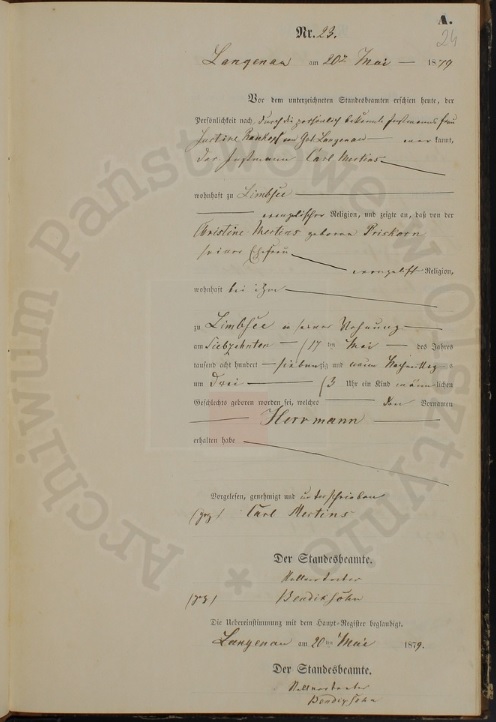 A.
24
Nr. 23.
Langenau am 20ten Mai 1879
Vor dem unterzeichneten Standesbeamten erschien heute, der
Persönlichkeit nach durch die persönlich bekannte Instmannsfrau
Justine geb. Langenau kannt,
der Instmann Carl Mertins
wohnhaft zu Limbsee
evangelischer Religion, und zeigte an, daß von der
Christine Mertins geborne Priskorn
seiner Ehefrau
evangelisch Religion,
wohnhaft bei ihm
zu Limbsee in seiner Wohnung
am Siebzehnten /17 ten Mai des Jahres
tausend acht hundert siebenzig und neun Nachmittag
um Drei /3 Uhr ein Kind männlichen
Geschlechts geboren worden sei, welches den Vornamen
Herrmann
erhalten habe
Vorgelesen, genehmigt und unterschrieben
/gez/ Carl Mertins
Der Standesbeamte.
Bendixsohn
Die Uebereinstimmung mit dem Haupt-Register beglaubigt.
Langenau am 20ten Mai 1879.
Der Standesbeamte.
Bendixsohn
Archiwum Państwowe w Olsztynie *